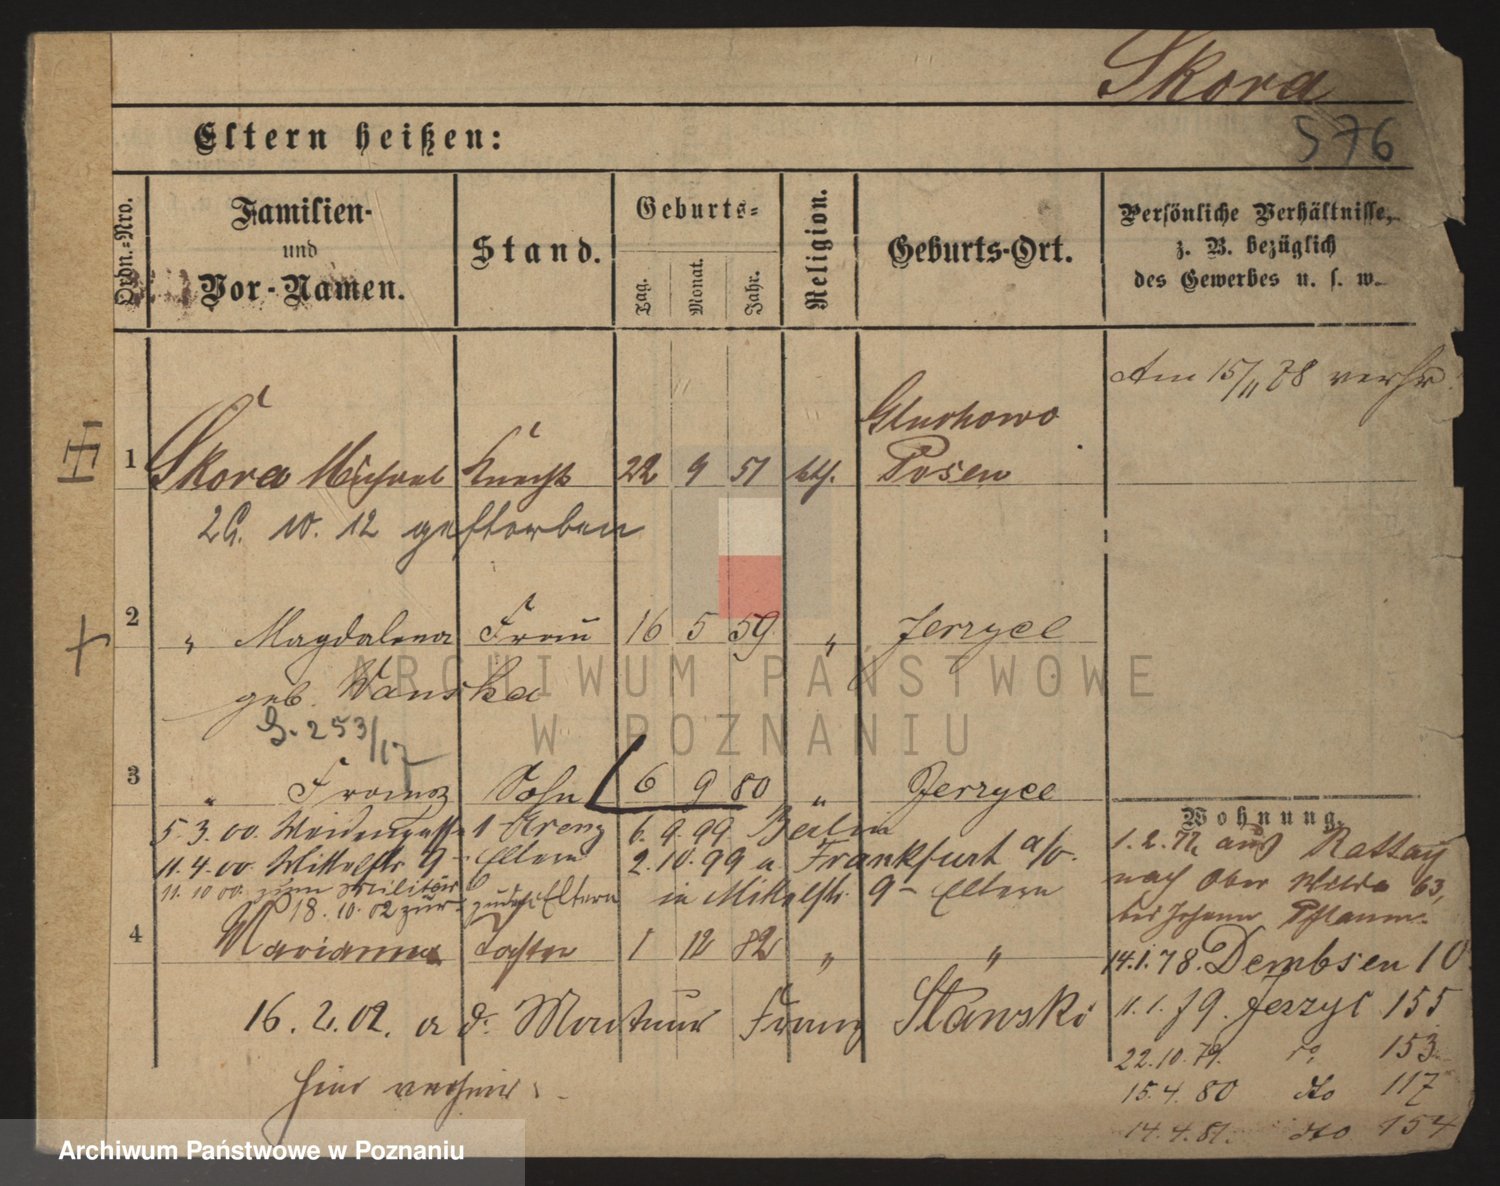 Skora
576
Eltern heißen:
Ordn.-Nro.
Familien-
und
Vor-Namen.
Stand.
Geburts-
Tag.
Monat.
Jahr.
Religion.
Geburts-Ort.
Persönliche Verhältnisse,
z. B. bezüglich
des Gewerbes u. s. w.
Am 15/11 78 verhr
III
1 Skora Michael Knecht 22 9 51 kth. Gluchowo
Posen
26. 10. 12 gestorben
2 " Magdalena Frau 16 5 59 " Jerzyce
geb. Wanska
S. 253/17
3 " Franz Sohn 6 9 80 " Jerzyce
5.3.00. 1 Kreuz 6. 9. 99. Berlin
11.4.00 Mittelstr 9 - Eltern 2.10.99 a. Frankfurt a/o.
11.10 00. zum Militär
18.10.02 zur. zu d. Eltern in Mittelstr. 9 - Eltern
4 Marianna Tochter 1 12 82 " "
16. 2. 02. a d. Monteur Franz Stawski
hier verheir.
Wohnung.
1.2.77. aus Rattay
nach Ober Wilda 63,
bei Johann Pflaum.
14.1.78. Dembsen 10
11.1.79. Jerzyc 155
22.10.79. do 153
15.4.80 dto 117
14.4.81. dto 154
ARCHIWUM PAŃSTWOWE
W POZNANIU
Archiwum Państwowe w Poznaniu